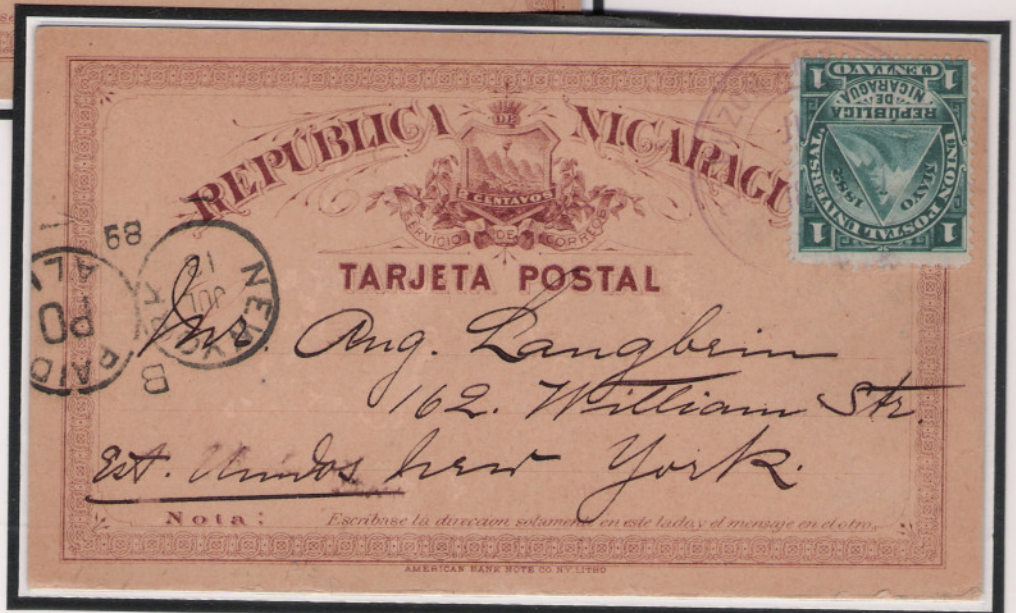 REPÚBLICA DE NICARAGU
2 CENTAVOS
SERVICIO DE CORREOS
TARJETA POSTAL
1 CENTAVO 1
REPÚBLICA DE NICARAGUA
UNION POSTAL UNIVERSAL
MAYO 1882
1 1
NEW YORK
JUL
12
89
B
PAID
ALL
Mr. Aug. Langbein
162. William Str.
Est. Unidos New York.
Nota: Escríbase la dirección solamente en este lado, y el mensaje en el otro.
AMERICAN BANK NOTE CO. NY. LITHO